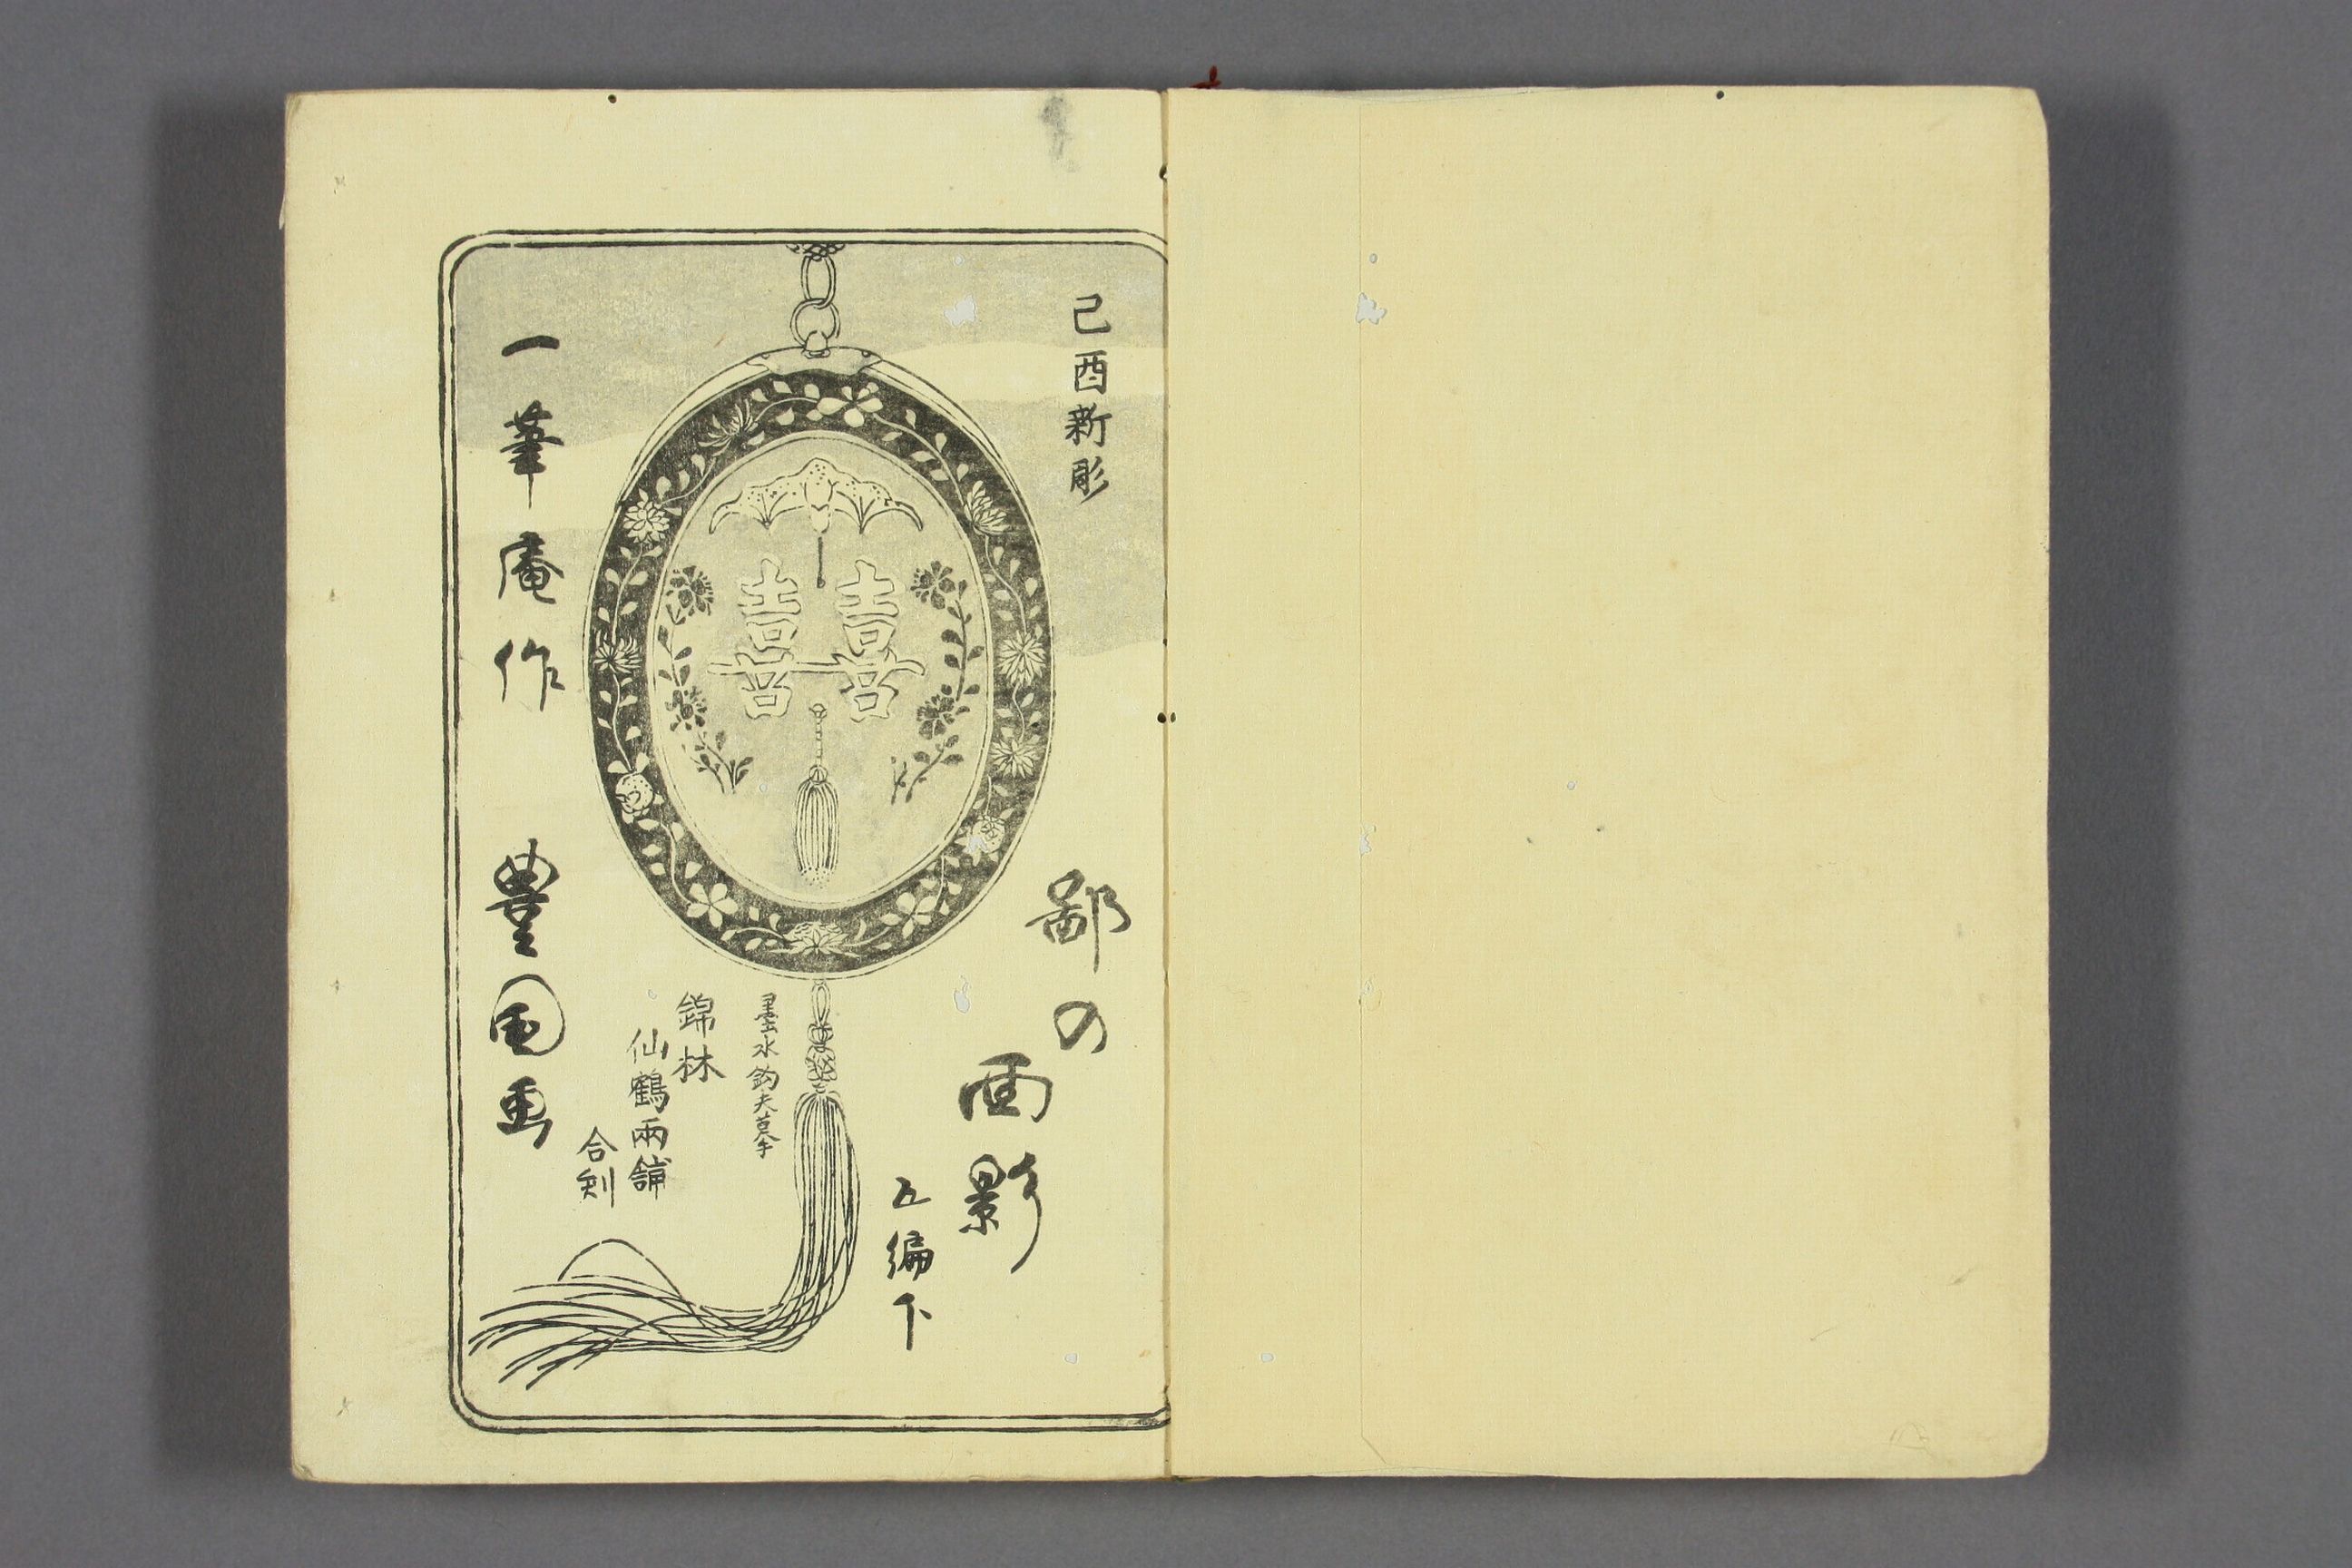 己酉新彫
鄙の面影
五編下
喜喜
墨水鈎夫摹
錦林
仙鶴兩舗
合刻
一筆庵作
豊国画